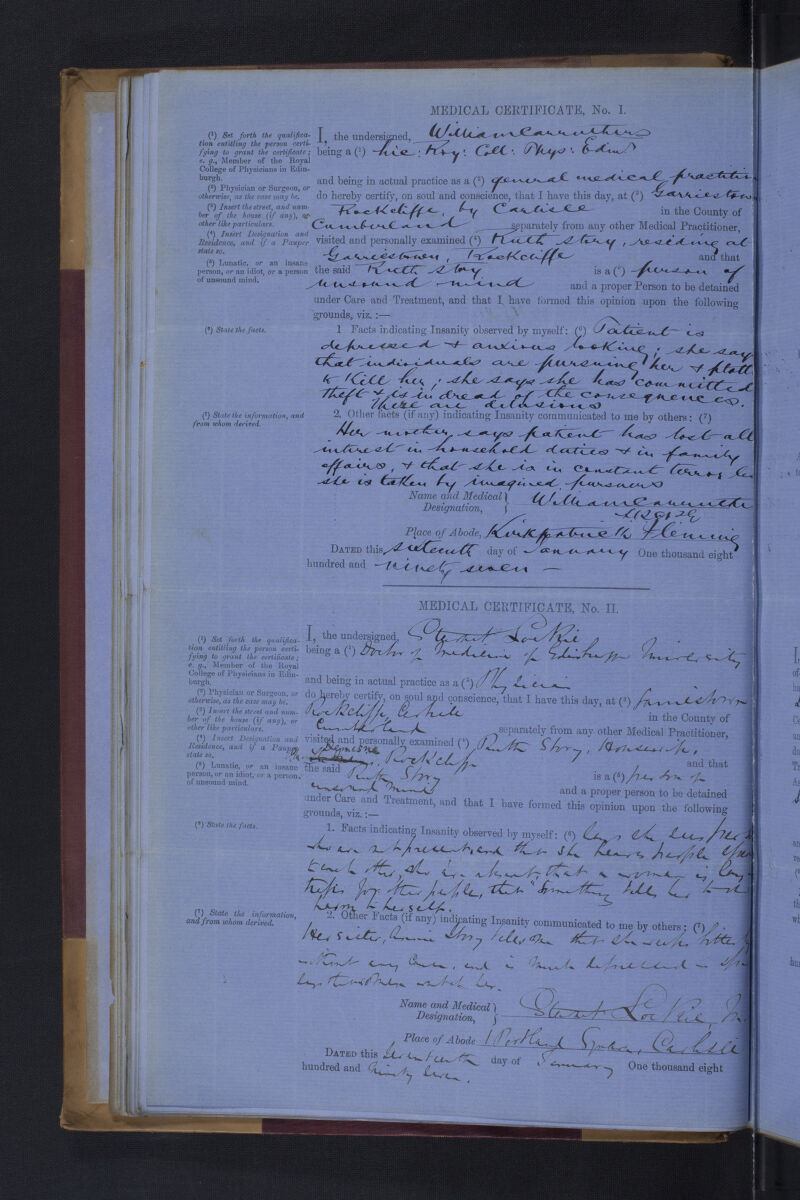 MEDICAL CERTIFICATE, No. I.
(¹) Set forth the qualifica-
tion entitling the person certi-
fying to grant the certificate;
e. g., Member of the Royal
College of Physicians in Edin-
burgh.
(²) Physician or Surgeon, or
otherwise, as the case may be.
(³) Insert the street, and num-
ber of the house (if any), or
other like particulars.
(⁴) Insert Designation and
Residence, and if a Pauper
state so.
(⁵) Lunatic, or an insane
person, or an idiot, or a person
of unsound mind.
I, the undersigned, William Carruthers
being a (¹) Lic: Roy: Coll: Phys: Edinr
and being in actual practice as a (²) general medical
do hereby certify, on soul and conscience, that I have this day, at (³) Garriestown
Rockcliffe, by Carlisle in the County of
Cumberland separately from any other Medical Practitioner,
visited and personally examined (⁴) Ruth Story, residing at
Garriestown, Rockcliffe and that
the said Ruth Story is a (⁵) person of
unsound mind and a proper Person to be detained
under Care and Treatment, and that I have formed this opinion upon the following
grounds, viz. :—
(⁶) State the facts.
1 Facts indicating Insanity observed by myself: (⁶) Patient is
depressed & anxious looking; she say
that individuals are pursuing her & plott
to kill her; she says she has committed
theft & is in dread of the consequences.
These are delusions
(⁷) State the information, and
from whom derived.
2. Other facts (if any) indicating Insanity communicated to me by others: (⁷)
Her mother says patient has lost all
interest in household duties & in family
affairs, & that she is in constant terror
she is taken by imagined pursuers
Name and Medical Designation, William Carruthe
Place of Abode, Kirkpatrick Fleming
DATED this sixteenth day of January One thousand eight
hundred and ninety seven —
MEDICAL CERTIFICATE, No. II.
(¹) Set forth the qualifica-
tion entitling the person certi-
fying to grant the certificate;
e. g., Member of the Royal
College of Physicians in Edin-
burgh.
(²) Physician or Surgeon, or
otherwise, as the case may be.
(³) Insert the street and num-
ber of the house (if any), or
other like particulars.
(⁴) Insert Designation and
Residence, and if a Pauper
state so.
(⁵) Lunatic, or an insane
person, or an idiot, or a person
of unsound mind.
I, the undersigned, Stewart Lockie
being a (¹) Doctor of Medicine of Edinburgh University
and being in actual practice as a (²) Physician
do hereby certify, on soul and conscience, that I have this day, at (³)
Rockcliffe Carlisle in the County of
Cumberland separately from any other Medical Practitioner,
visited and personally examined (⁴) Ruth Story, Housework,
Demesne, Rockcliffe and that
the said Ruth Story is a (⁵) person of
unsound mind and a proper person to be detained
under Care and Treatment, and that I have formed this opinion upon the following
grounds, viz. :—
(⁶) State the facts.
1. Facts indicating Insanity observed by myself: (⁶) Says she sees
who are not present, and that she hears people
to each other, who are absent, that a woman is
for other people, that something tells her to do
harm to herself.
(⁷) State the information,
and from whom derived.
2. Other Facts (if any) indicating Insanity communicated to me by others: (⁷)
Her sister, Annie Story tells me that she weeps bitter
without any cause, and is much depressed
says watch her.
Name and Medical Designation, Stewart Lockie
Place of Abode 1 Portland Square, Carlisle
DATED this Seventeenth day of January One thousand eight
hundred and Ninety Seven.